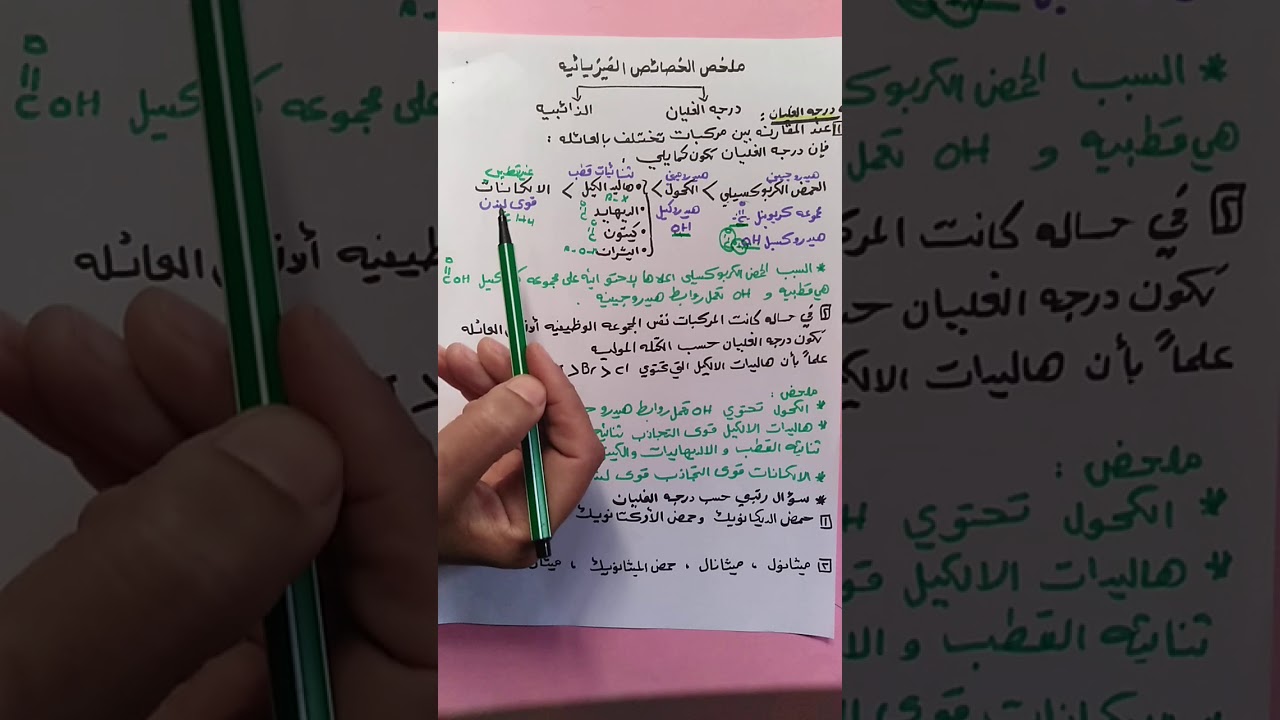 ملخص الخصائص الفيزيائيه
درجه الغليان الذائبيه
درجه الغليان :
١ عند المقارنه بين مركبات تختلف بالعائله :
فإن درجه الغليان تكون كما يلي
هيدروجينيه هيدروجينيه ثنائيات قطب غير قطبي
الحمض الكربوكسيلي > الكحول > هاليد الكيل > الالكانات
R-X قوى لندن
مجموعه كربونيل C=O هيدروكسيل الديهايد
هيدروكسيل OH OH كيتون
ايثرات R-O-
* السبب الحمض الكربوكسيلي اعلاها لإحتوائه على مجموعه COH
هي قطبيه و OH تعمل روابط هيدروجينيه .
٢ في حاله كانت المركبات نفس المجموعه الوظيفيه أو العائله
تكون درجه الغليان حسب الكتله الموليه
علماً بأن هاليدات الالكيل التي تحتوي > Br > Cl
ملخص :
* الكحول تحتوي OH تعمل روابط
* هاليدات الالكيل قوى التجاذب
ثنائيه القطب و الالديهايدات
* الالكانات قوى التجاذب قوى
* سؤال رتبي حسب درجه الغليان
١ حمض الديكانويك وحمض الأوكتانويك
٢ ميثانول ، ميثانال ، حمض الميثانويك ،